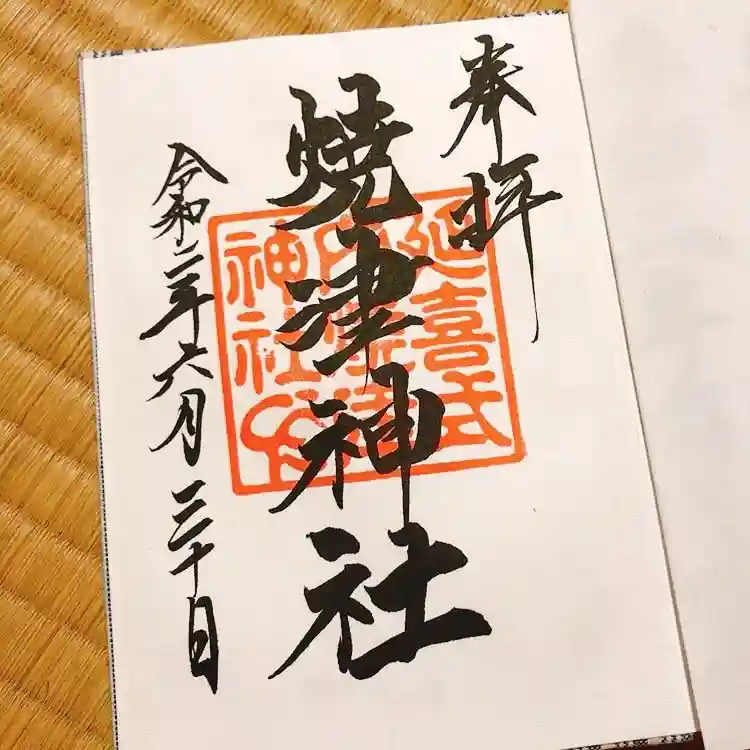 奉拝
焼津神社
令和二年六月三十日
延喜式
内焼津
神社印